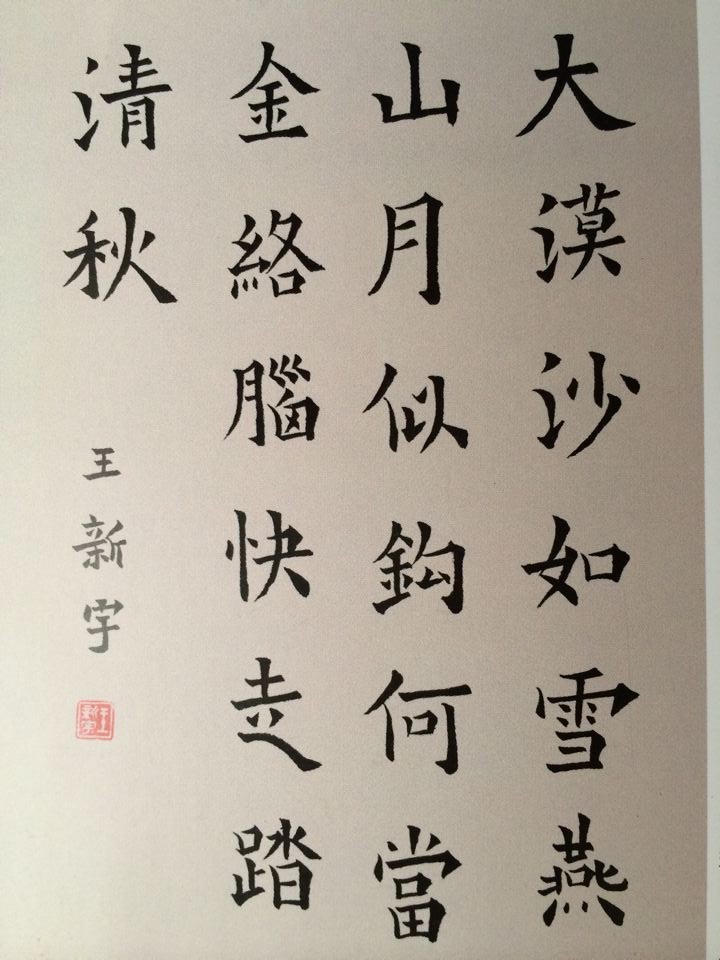 大漠沙如雪燕
山月似鈎何當
金絡腦快走踏
清秋
王新宇
王新宇